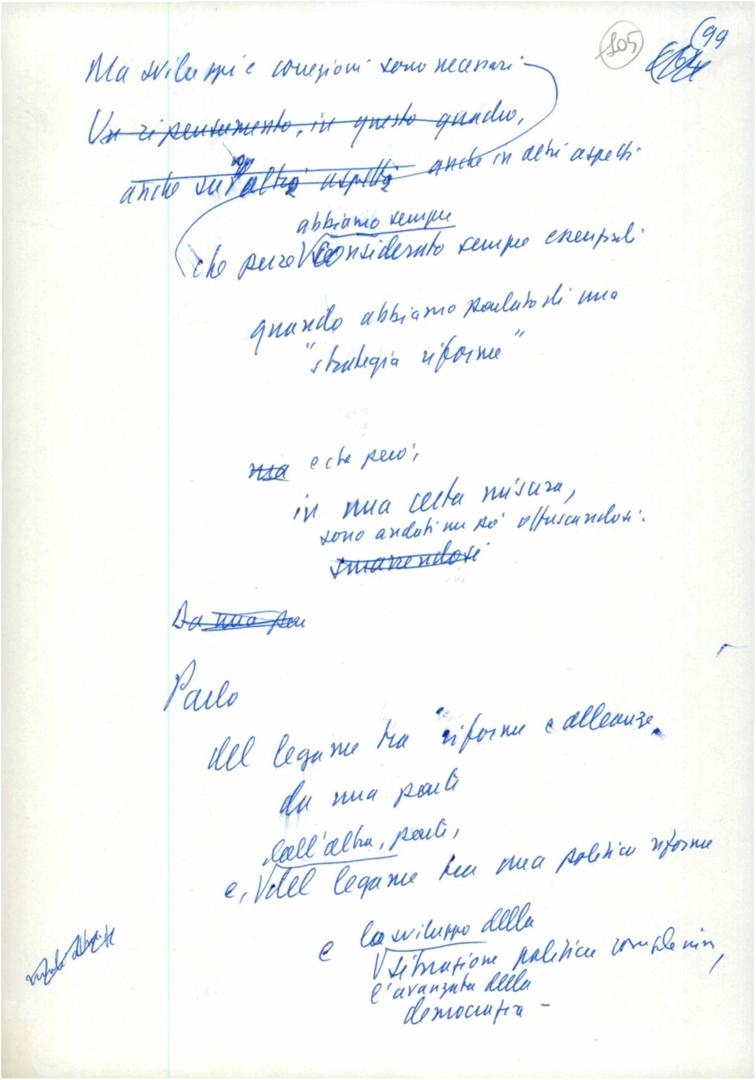 105
99
Ma sviluppi e correzioni sono necessari
Un ripensamento, in questo quadro,
anche su altri aspetti anche in altri aspetti
abbiamo sempre
che pure considerato sempre essenziali
quando abbiamo parlato di una
"strategia riforme"
ma e che però,
in una certa misura,
sono andati un po' offuscandosi.
smarrendosi
Da una par
Parlo
del legame tra riforme e alleanze
da una parte
dall'altra, parte,
e, del legame tra una politica riforme
e lo sviluppo della
situazione politica
l'avanzata della
democrazia -